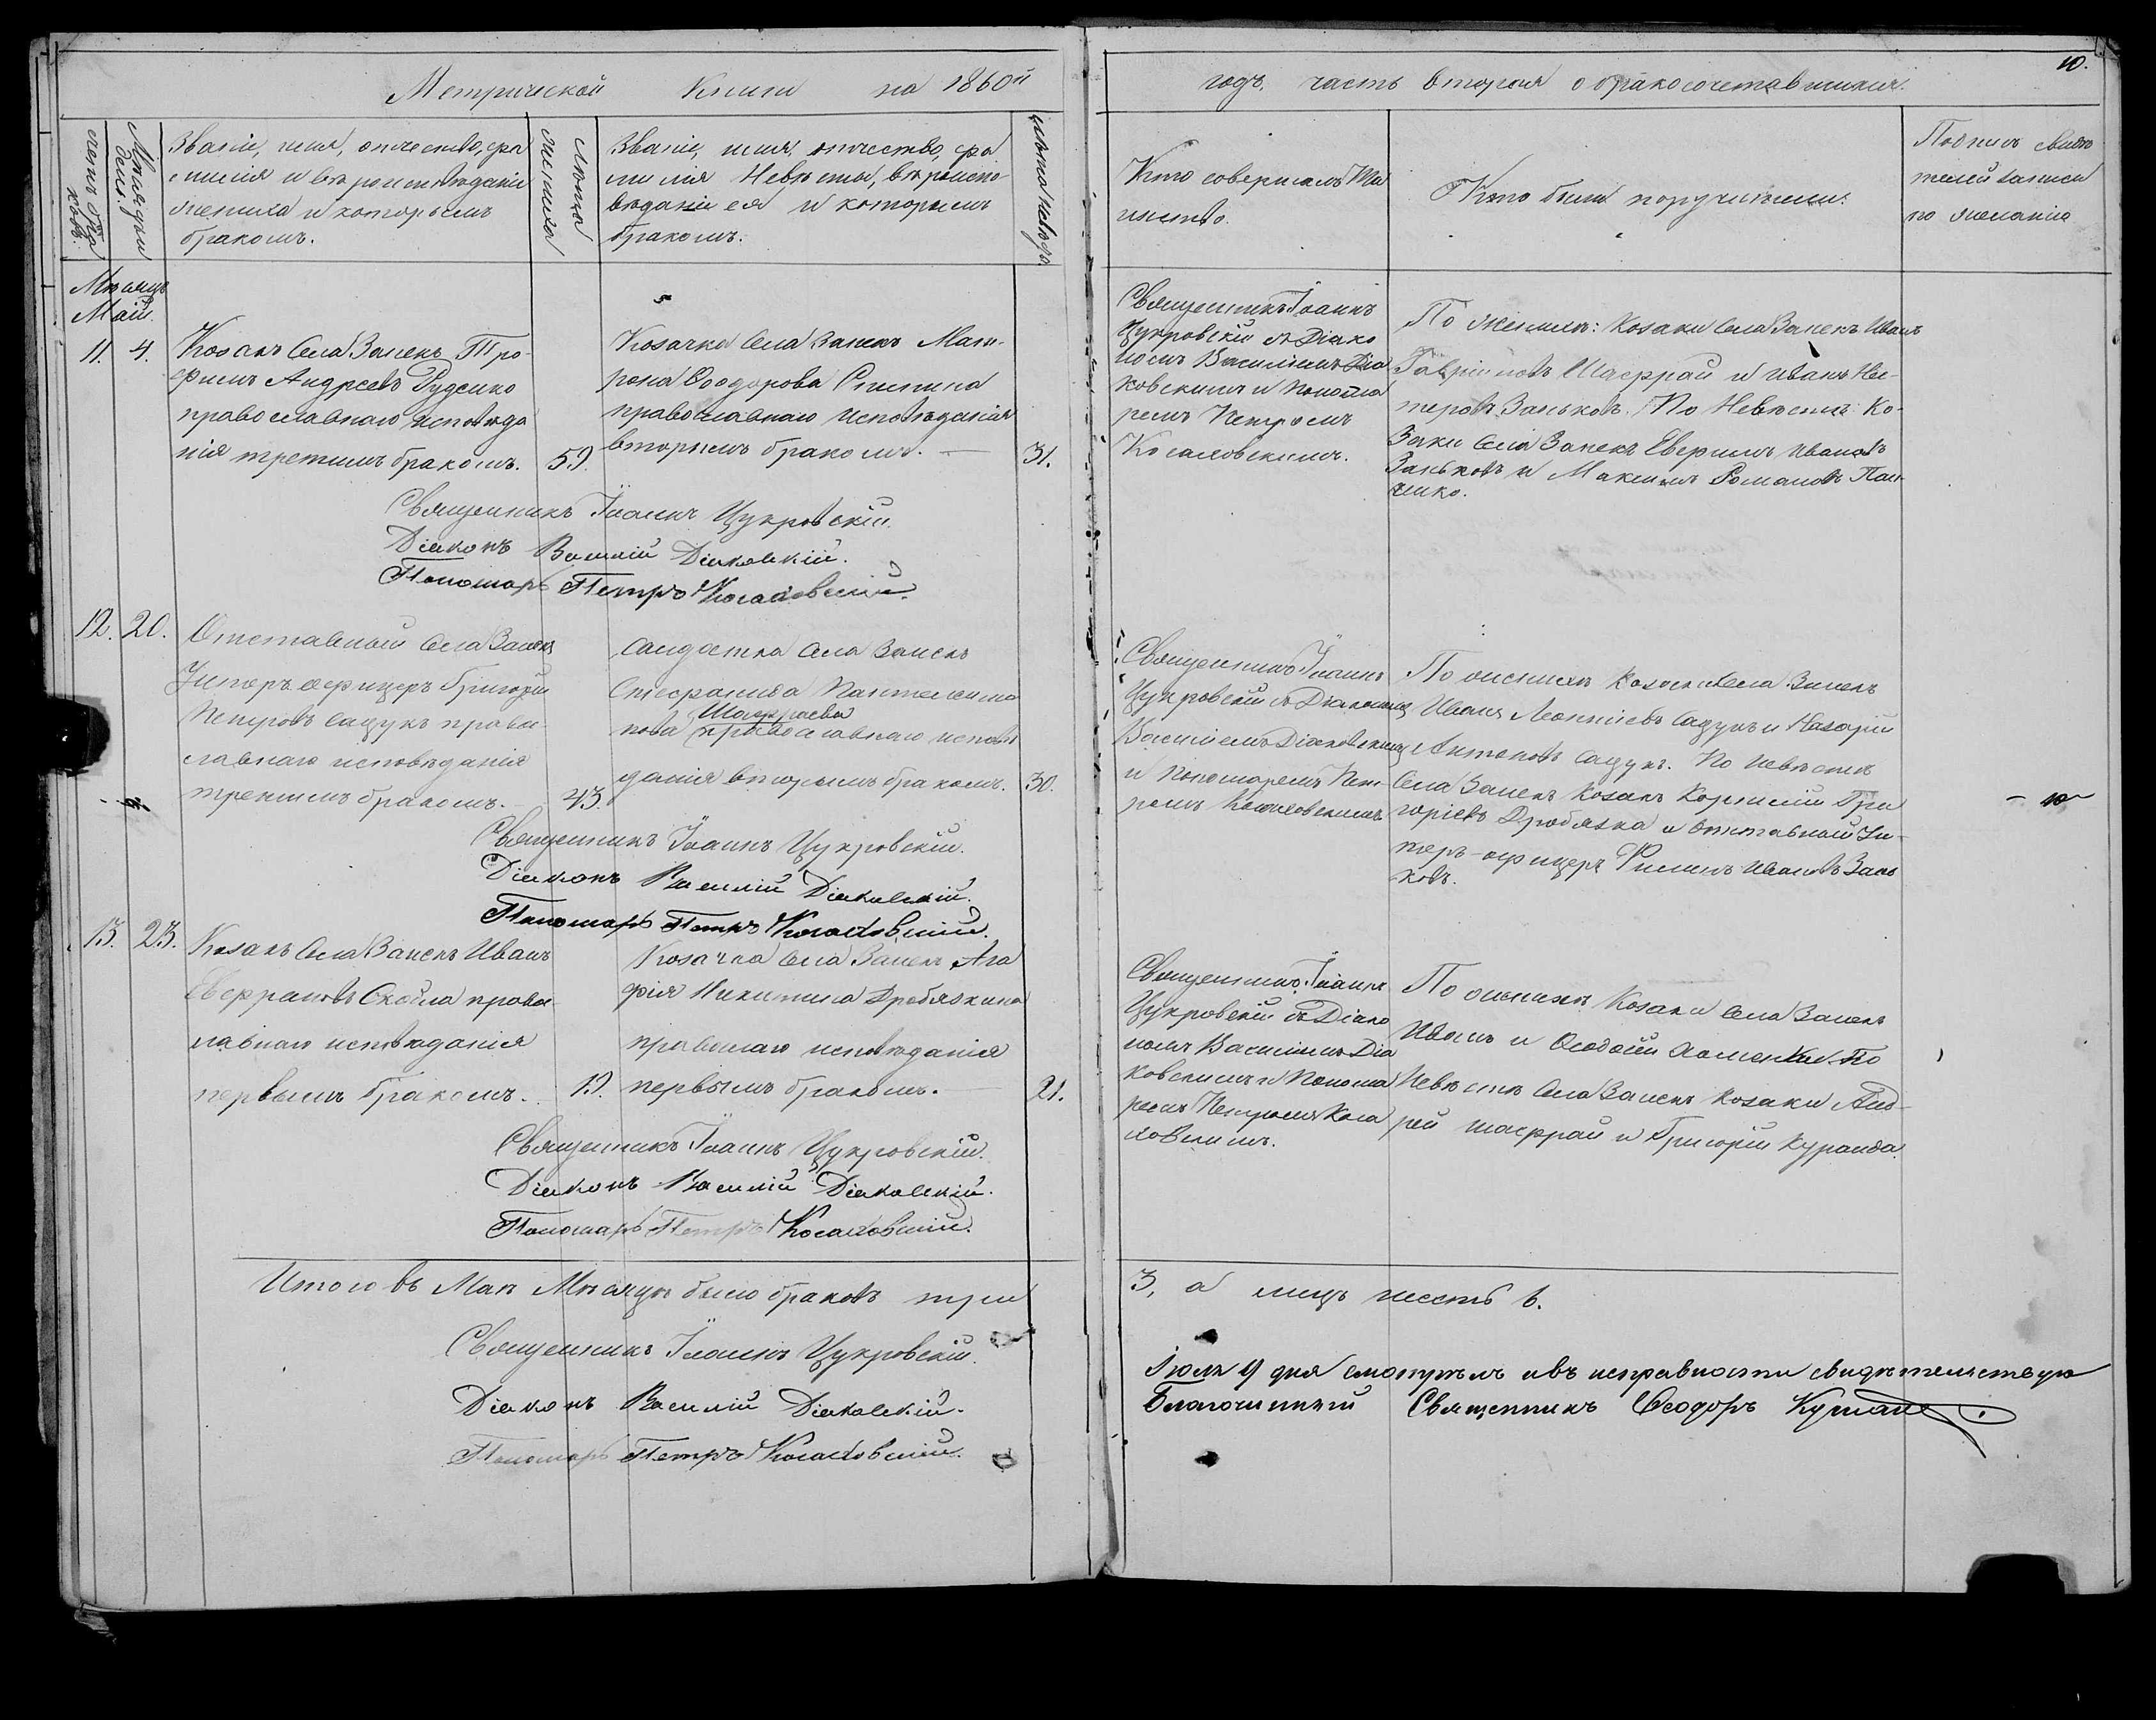 Метрической Книги на 1860й
годъ, часть вторая о бракосочетавшихся.
10.
Мѣсяцъ и день.
Званіе, имя, отчество, фа
милія и вѣроисповѣданіе
жениха и которымъ
бракомъ.
Лѣта жениха
Званіе, имя, отчество, фа
милія Невѣсты, вѣроиспо-
вѣданіе ея и которымъ
бракомъ.
Лѣта невѣсты
Кто совершалъ Та
инство.
Кто были поручители.
Подпись свидѣ
телей записи
по желанію
Мѣсяцъ
Май.
11. 4.
Козакъ Села Запекъ Тро-
фимъ Андреевъ Руденко
православнаго исповѣда
нія третимъ бракомъ.
59.
Козачка Села Запекъ Мат-
рона Ѳеодорова
православнаго исповѣданія
вторымъ бракомъ. —
31.
Священникъ Іоаннъ
Цукровскій съ Діако
номъ Василіемъ Діа
ковскимъ и Понома
ремъ Петромъ
Косаковскимъ.
По женихѣ: Козаки Села Запекъ Иванъ
Гавріиловъ Шаффай и Иванъ Пе-
тровъ Заньковъ. По Невѣстѣ: Ко-
заки Села Запекъ Иванов
Заньковъ и Максимъ Романовъ Пан-
ченко.
Священникъ Іоаннъ Цукровскій.
Діаконъ Василій Діаковскій.
Пономарь Петръ Косаковскій.
12. 20.
Отставный Села Запекъ
Унтеръ офицеръ Григорій
Петровъ Сацукъ право-
славнаго исповѣданія
третимъ бракомъ.
43.
Солдатка Села Запекъ
Стефанида Пантелеимо
Шаффаева
нова православнаго исповѣ
данія вторымъ бракомъ.
30.
Священникъ Іоаннъ
Цукровскій съ Діакономъ
Василіемъ Діаковскимъ
и Пономаремъ Пет-
ромъ Косаковскимъ.
По женихѣ Козаки Села Запекъ
Иванъ Леонтіевъ Сацукъ и Назарій
Антоновъ Сацукъ. По невѣстѣ
Села Запекъ Козакъ Корнилій Гри
горіевъ Дробязка и Отставный Ун-
теръ-офицеръ Филипъ Ивановъ Зань
ковъ.
Священникъ Іоаннъ Цукровскій.
Діаконъ Василій Діаковскій.
Пономарь Петръ Косаковскій.
13. 23.
Козакъ Села Запекъ Иванъ
Скобла правос-
лавнаго исповѣданія
первымъ бракомъ.
19.
Козачка Села Запекъ Ага
фія Никитина Дробязкина
исповѣданія
первымъ бракомъ. —
21.
Священникъ Іоаннъ
Цукровскій съ Діако
номъ Василіемъ Діа
ковскимъ и Понома
ремъ Петромъ Коса
ковскимъ.
По женихѣ Козаки Села Запекъ
Иванъ и Ѳеодосій По
Невѣстѣ Села Запекъ Козаки Анд-
рей Шаффай и Григорій Куранда.
Священникъ Іоаннъ Цукровскій.
Діаконъ Василій Діаковскій.
Пономарь Петръ Косаковскій.
Итого въ Маѣ Мѣсяцѣ было браковъ три
3, а лицъ шесть 6.
Священникъ Іоаннъ Цукровскій.
Діаконъ Василій Діаковскій.
Пономарь Петръ Косаковскій.
Іюля 9 дня смотрѣлъ и въ исправности свидѣтельствую
Благочинный Священникъ Ѳеодоръ